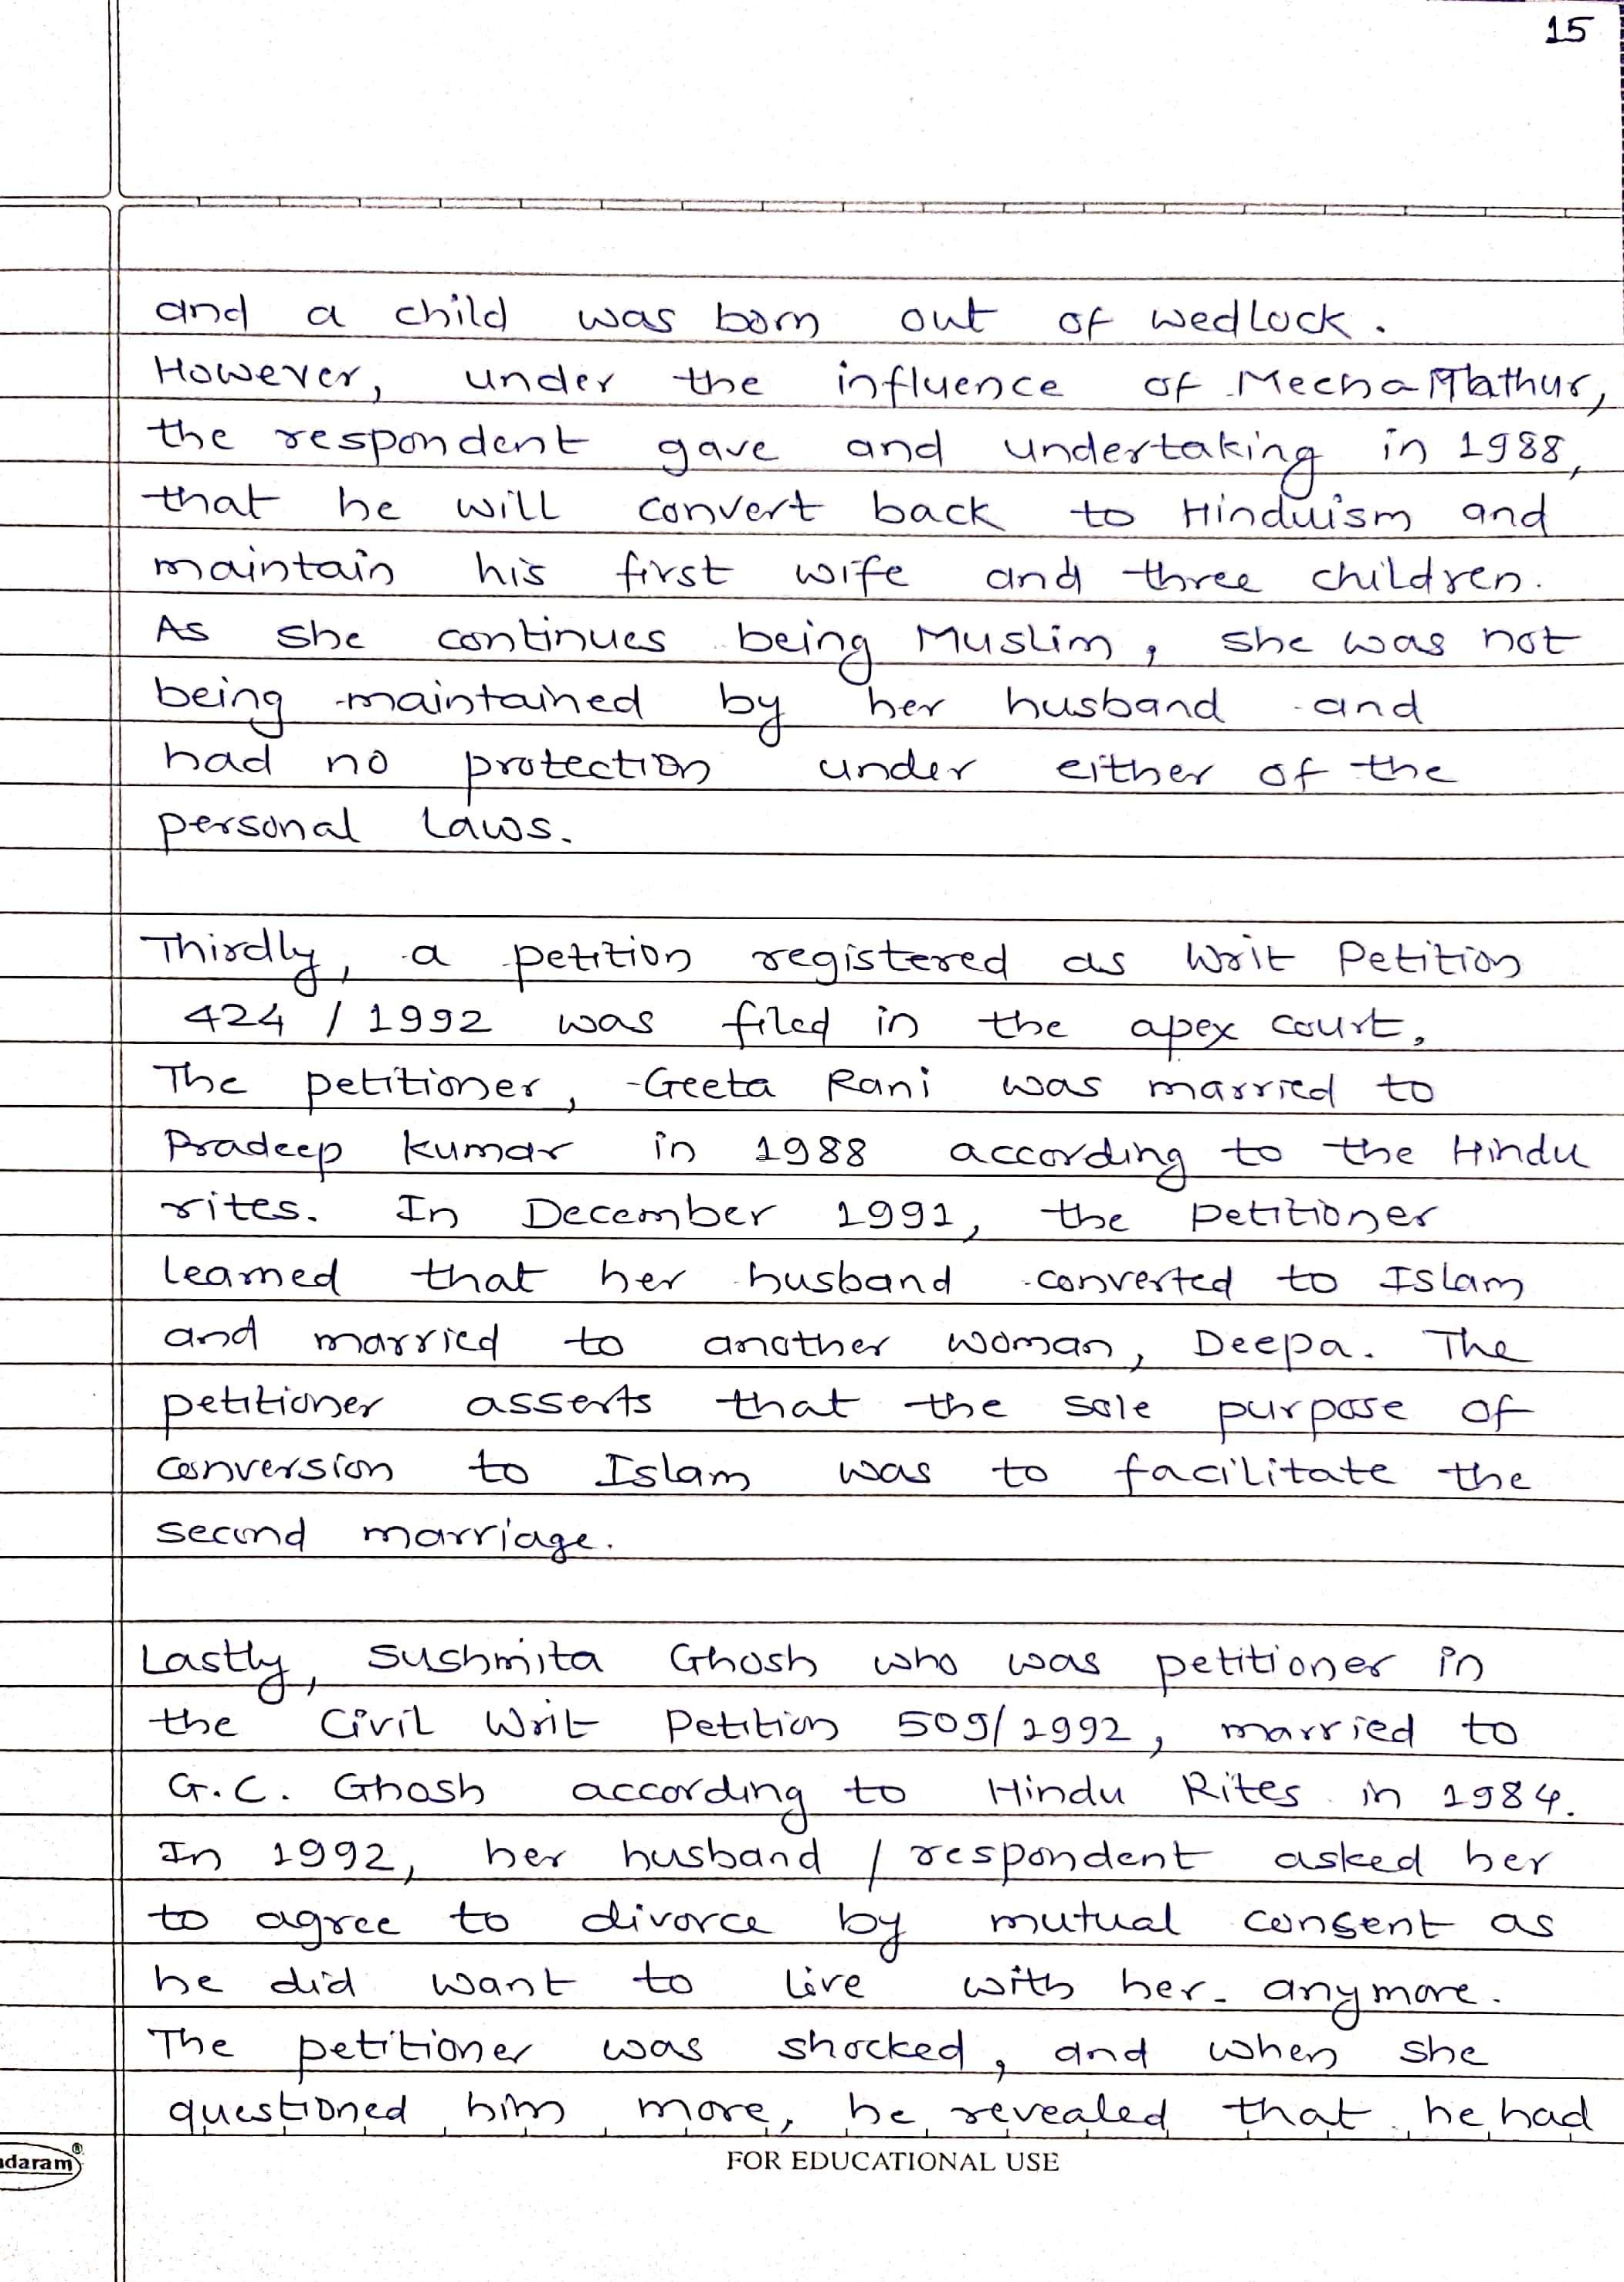 15
and a child was born out of wedlock.
However, under the influence of Meena Mathur,
the respondent gave and undertaking in 1988,
that he will convert back to Hinduism and
maintain his first wife and three children.
As she continues being Muslim, she was not
being maintained by her husband and
had no protection under either of the
personal laws.
Thirdly, a petition registered as Writ Petition
424 / 1992 was filed in the apex court.
The petitioner, Geeta Rani was married to
Pradeep Kumar in 1988 according to the Hindu
rites. In December 1991, the petitioner
learned that her husband converted to Islam
and married to another woman, Deepa. The
petitioner asserts that the sole purpose of
conversion to Islam was to facilitate the
second marriage.
Lastly, Sushmita Ghosh who was petitioner in
the Civil Writ Petition 509/1992, married to
G.C. Ghosh according to Hindu Rites in 1984.
In 1992, her husband / respondent asked her
to agree to divorce by mutual consent as
he did want to live with her anymore.
The petitioner was shocked, and when she
questioned him more, he revealed that he had
daram®
FOR EDUCATIONAL USE